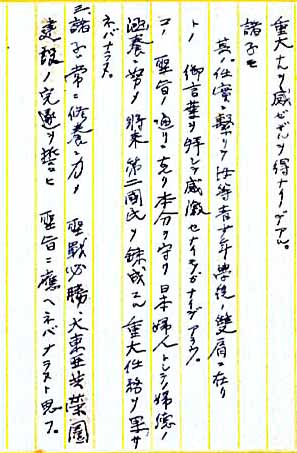 重大ナル感ゼザルヲ得ナイデアル。
諸子モ
其ノ任實ニ繋リテ汝等青少年學徒ノ雙肩ニ在リ
トノ御言葉ヲ拝シテ感激セナイモノガナイデアラウ。
コノ聖旨ノ通リ克ク本分ヲ守リ日本婦人トシテノ婦徳ノ
涵養ニ努メ將來第二國民ヲ錬成スル重大任務ヲ果サ
ネバナラヌ。
三、諸子ハ常ニ修養ニ力メ聖戰必勝、大東亜共榮圏
建設ノ完遂ヲ誓ヒ聖旨ニ應ヘネバナラヌト思フ。